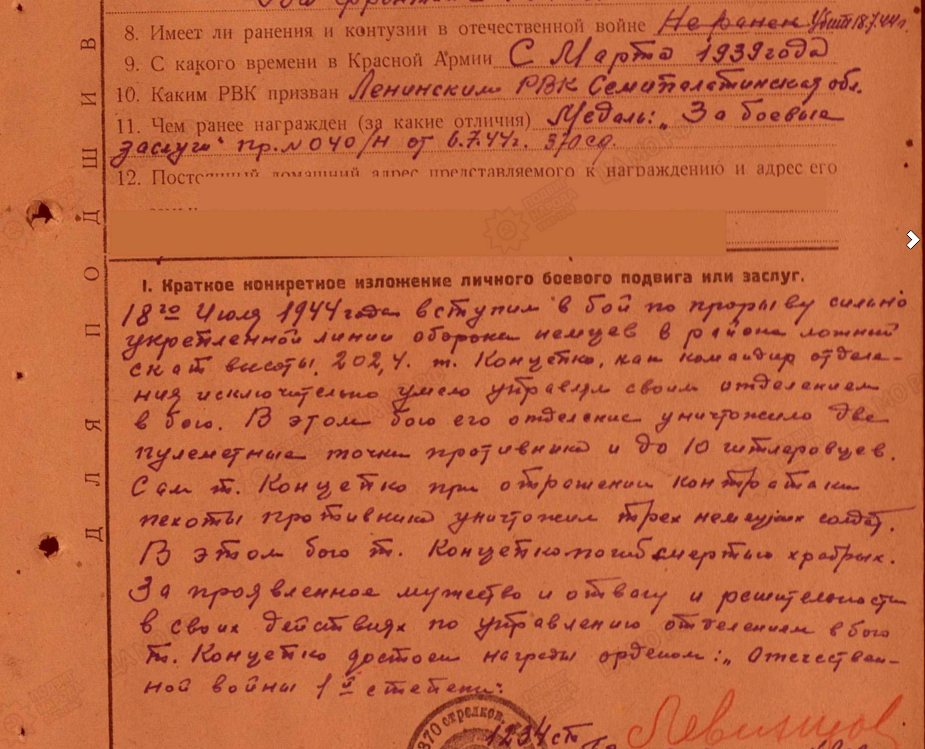 8. Имеет ли ранения и контузии в отечественной войне Не ранен Убит 18.7.44г.
9. С какого времени в Красной Армии С Марта 1939 года
10. Каким РВК призван Ленинским РВК Семипалатинская обл.
11. Чем ранее награжден (за какие отличия) Медаль: „За боевые
заслуги" пр. № 040/н от 6.7.44г. 370 сд.
12. Постоянный домашний адрес представляемого к награждению и адрес его
ДЛЯ ПОДШИВ
I. Краткое конкретное изложение личного боевого подвига или заслуг.
18го Июля 1944 года вступил в бой по прорыву сильно
укрепленной линии обороны немцев в районе
скат высоты 202,4. т. Концепко, как командир отделе-
ния исключительно умело управлял своим отделением
в бою. В этом бою его отделение уничтожило две
пулеметные точки противника и до 10 гитлеровцев.
Сам т. Концепко при отражении контратаки
пехоты противника уничтожил трех немецких солдат.
В этом бою т. Концепко погиб смертью храбрых.
За проявленное мужество и отвагу и решительность
в своих действиях по управлению отделением в бою
т. Концепко достоен награды орденом: „Отечествен-
ной войны 1й степени:
370 стрелков.
1234 сп